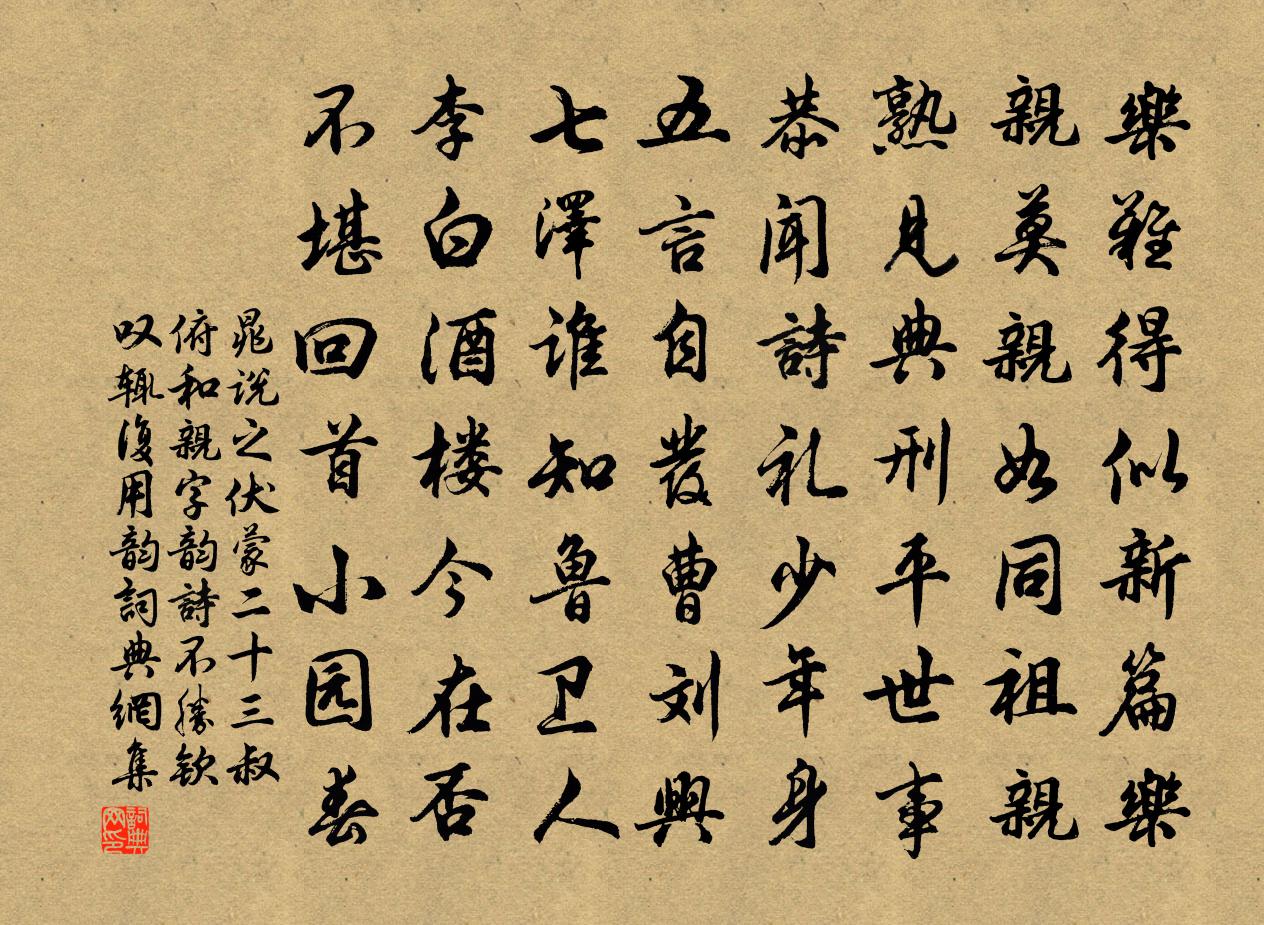 樂難得似新篇樂
親莫親如同祖親
熟見典刑平世事
恭聞詩礼少年身
五言自發曹刘興
七澤谁知鲁卫人
李白酒楼今在否
不堪回首小园春
晁说之伏蒙二十三叔
俯和親字韵詩不勝钦
叹辄復用韵詞典網集
詞典网印